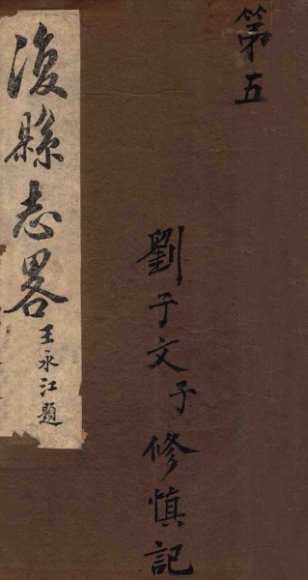 第五
劉子文子修慎記
復縣志畧
王永江題